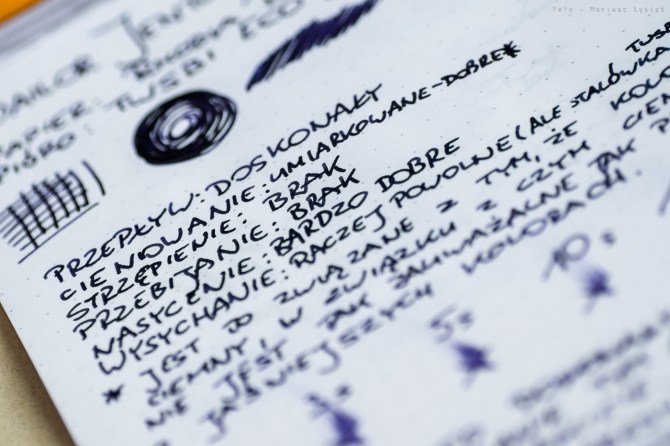 foto - Mariusz Łysień
SAILOR
PAPIER:
PIÓRO: TWSBI ECO
PRZEPŁYW: DOSKONAŁY
CIENIOWANIE: UMIARKOWANE-DOBRE*
STRZĘPIENIE: BRAK
PRZEBIJANIE: BRAK
NASYCENIE: BARDZO DOBRE
WYSYCHANIE: RACZEJ POWOLNE (ALE STALÓWKA
* JEST TO ZWIĄZANE Z TYM, ŻE KOLO
CIEMNY, W ZWIĄZKU Z CZYM CIE
NIE JEST TAK ZAUWAŻALNE JAK P
JAŚNIEJSZYCH KOLORACH.
5s
10s